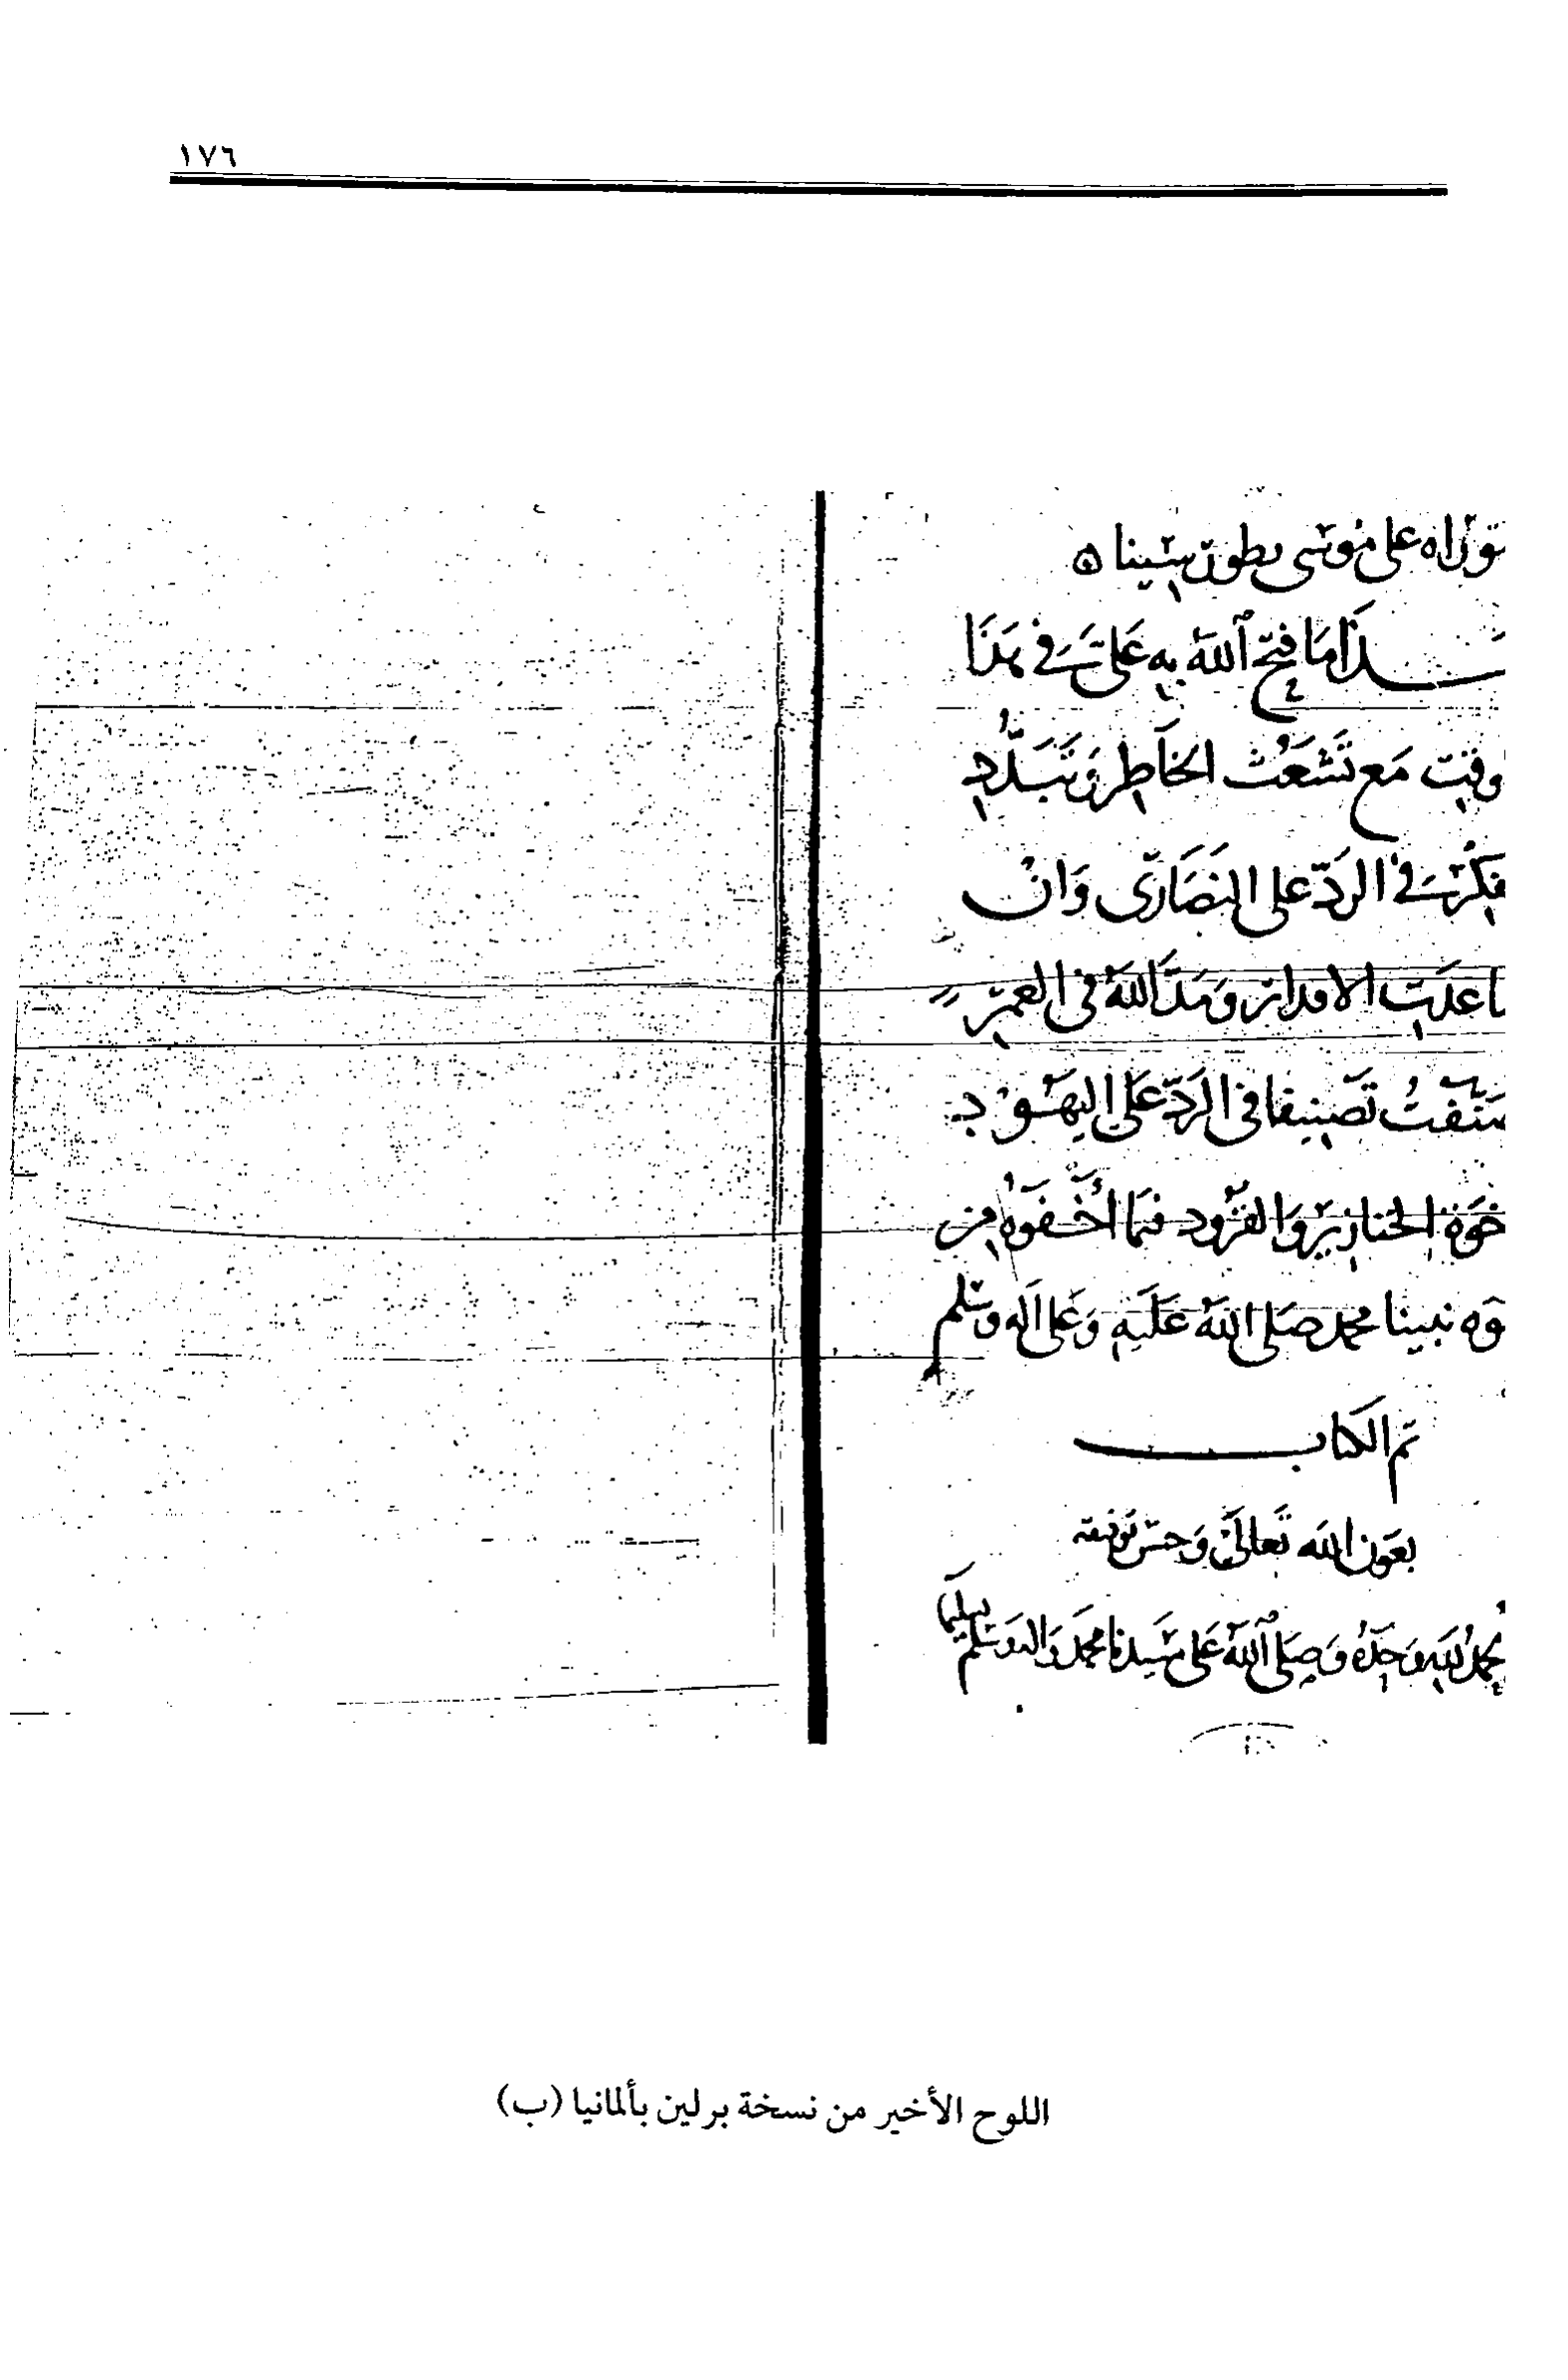 ١٧٦
توراه على موسى بطور سينا ه
ـذا ما فتح الله به علي في هذا
وقت مع تشعث الخاطر وتبدد
فكرتي في الرد على النصارى وان
ـاعدت الاقدار ومد الله في العمر
ـنفت تصنيفا في الرد على اليهود
ـخوة الخنازير والقرود فيما أخفوه من
ـوة نبينا محمد صلى الله عليه وعلى اله وسلم
تم الكتاب
بعون الله تعالى وحسن توفيقه
الحمد لله وحده وصلى الله على سيدنا محمد واله وسلم تسليما
اللوح الأخير من نسخة برلين بألمانيا (ب)